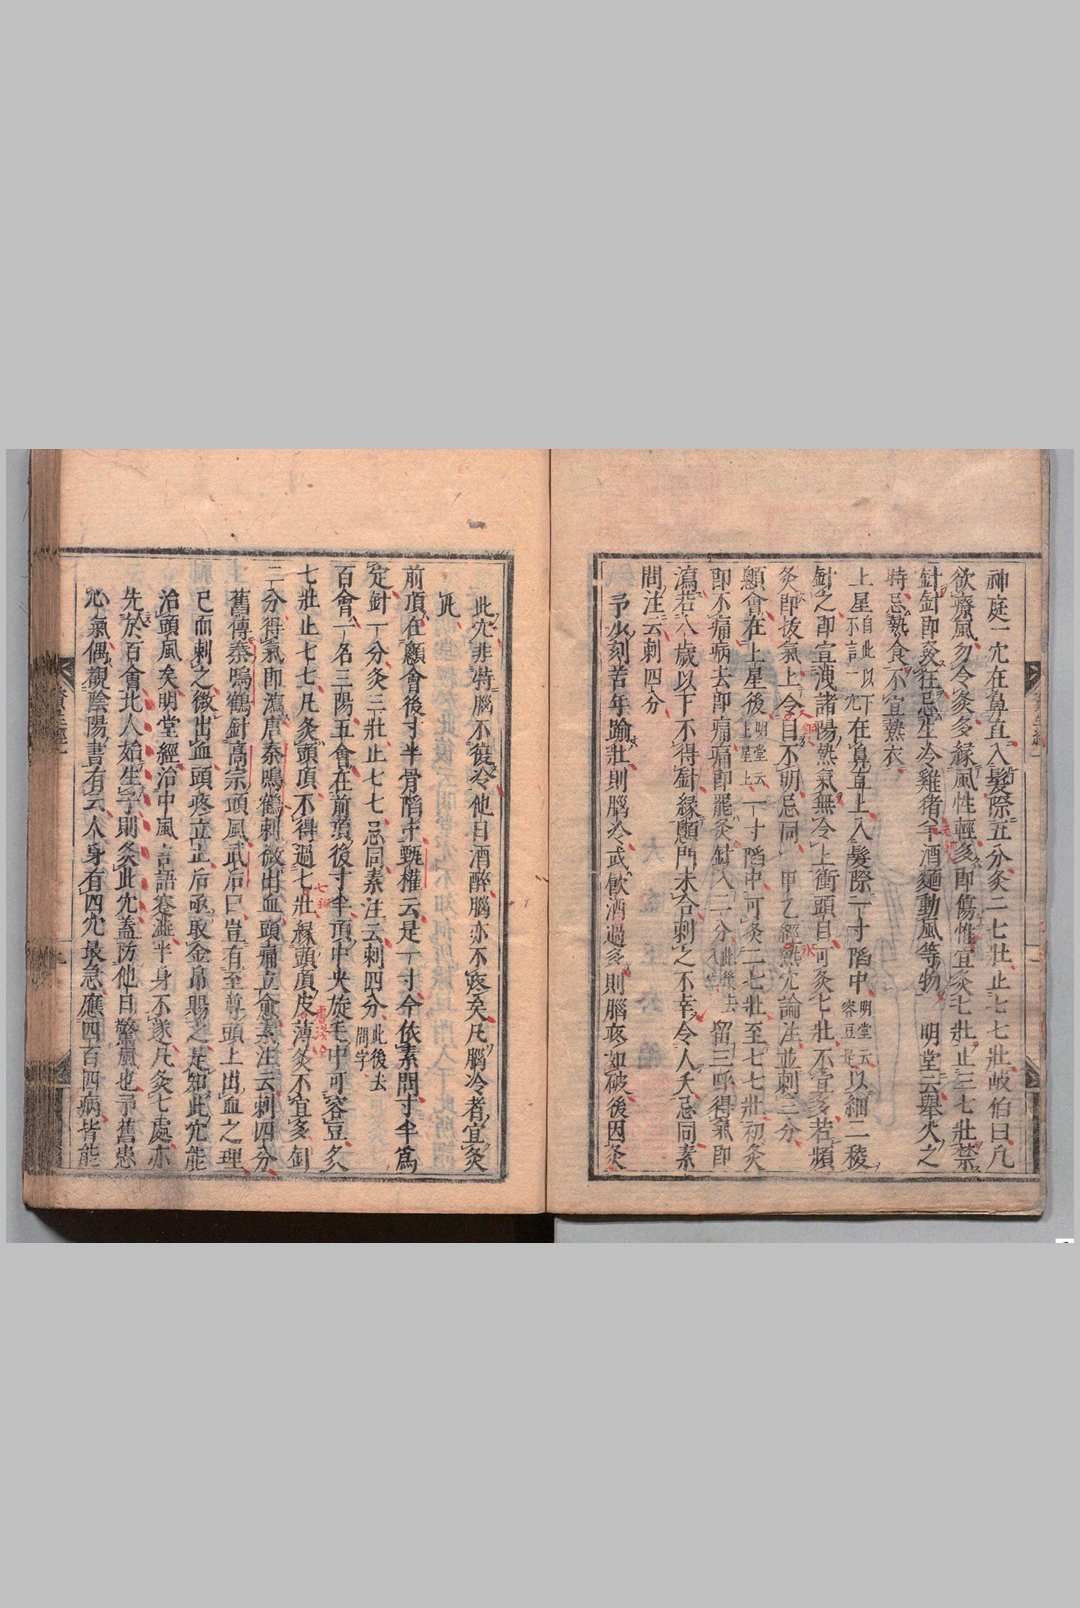 神庭一穴在鼻直入髮際五分灸二七壯止七七壯岐伯曰凡
欲療風勿令灸多緣風性輕多即傷惟宜灸七壯止三七壯禁
針針即發狂忌生冷雞猪羊酒麵動風等物明堂云舉火之
特忌熱食不宜熱衣
上星自此以下不言一穴在鼻直上入髮際一寸陷中明堂云容豆是以細二稜
針之即宣洩諸陽熱氣無令上衝頭目可灸七壯不宜多若頻
灸即拔氣上令目不明忌同甲乙經熱穴論注並刺三分
顖會在上星後明堂云上星上一寸陷中可灸二七壯至七七壯初灸
即不痛病去即痛痛即罷灸針入二分此後去入字留三呼得氣即
瀉若八歲以下不得針緣顖門未合刺之不幸令人夭忌同素
問注云刺四分
予少刻苦年踰壯則腦冷或飲酒過多則腦疼如破後因灸
此穴非特腦不復冷他日酒醉腦亦不疼矣凡腦冷者宜灸
此
前頂在顖會後寸半骨陷中甄權云是一寸今依素問寸半爲
定針一分灸三壯止七七忌同素注云刺四分此後去問字
百會一名三陽五會在前頂後寸半頂中央旋毛中可容豆灸
七壯止七七凡灸頭頂不得過七壯緣頭頂皮薄灸不宜多針
二分得氣即瀉唐秦鳴鶴刺微出血頭痛立愈素注云刺四分
舊傳秦鳴鶴針高宗頭風武后曰豈有至尊頭上出血之理
已而刺之微出血頭疼立止后亟取金帛賜之是知此穴能
治頭風矣明堂經治中風言語蹇澁半身不遂凡灸七處亦
先於百會北人始生子則灸此穴蓋防他日驚風也予舊患
心氣偶觀陰陽書有云人身有四穴最急應四百四病皆能